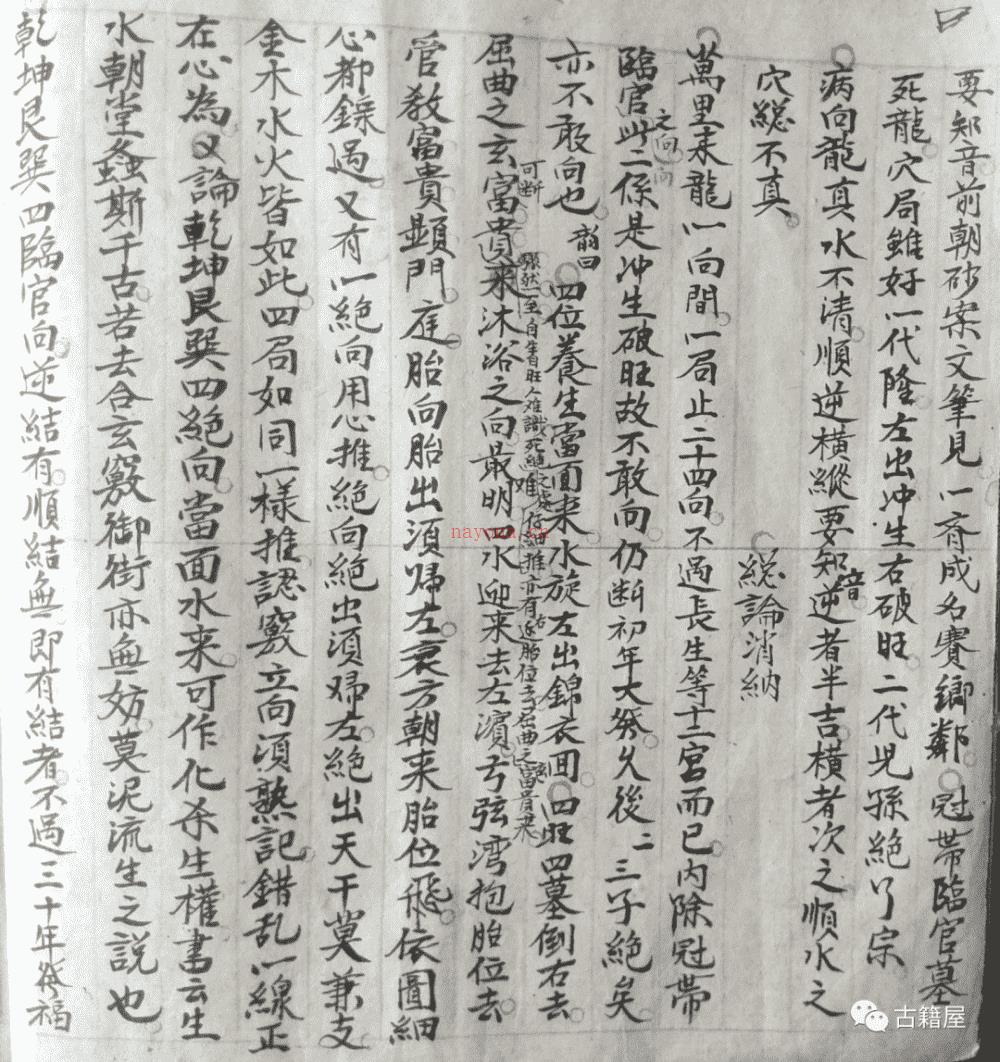 要知音前朝砂案文筆見一齊成名賽鄉鄰冠帶臨官墓
死龍穴局雖好一代隆左出冲生右破旺二代兒孫絕了宗
病向龍真水不清順逆橫縱要知音逆者半吉橫者次之順水之
穴総不真
総論消納
萬里来龍一向間一局止二十四向不過長生等十二宮而已内除冠帶
臨官之向此二係是冲生破旺故不敢向仍断初年大發久後二三子絕矣
亦不敢向也
韵曰四位養生當面来水旋左出錦衣囬四旺四墓倒右去
屈曲之玄富貴来沐浴之向最明四水迎来去左濱弓弦湾抱胎位去
可断
驟然一至自生自旺人难識死絕
屈曲之富貴来
管教富貴顕門庭胎向胎出須帰左衰方朝来胎位飛依圖細
心都錄過又有一絕向用心推絕向絕出須帰左絕出天干莫兼支
金木水火皆如此四局如同一樣推認竅立向須熟記錯乱一線正
在心為又論乾坤艮巽四絕向當面水来可作化杀生權書云生
水朝堂螽斯千古若去合玄竅御街亦無妨莫泥流生之説也
乾坤艮巽四臨官向逆結有順結無即有結者不過三十年發福
nayona.cn
古籍屋